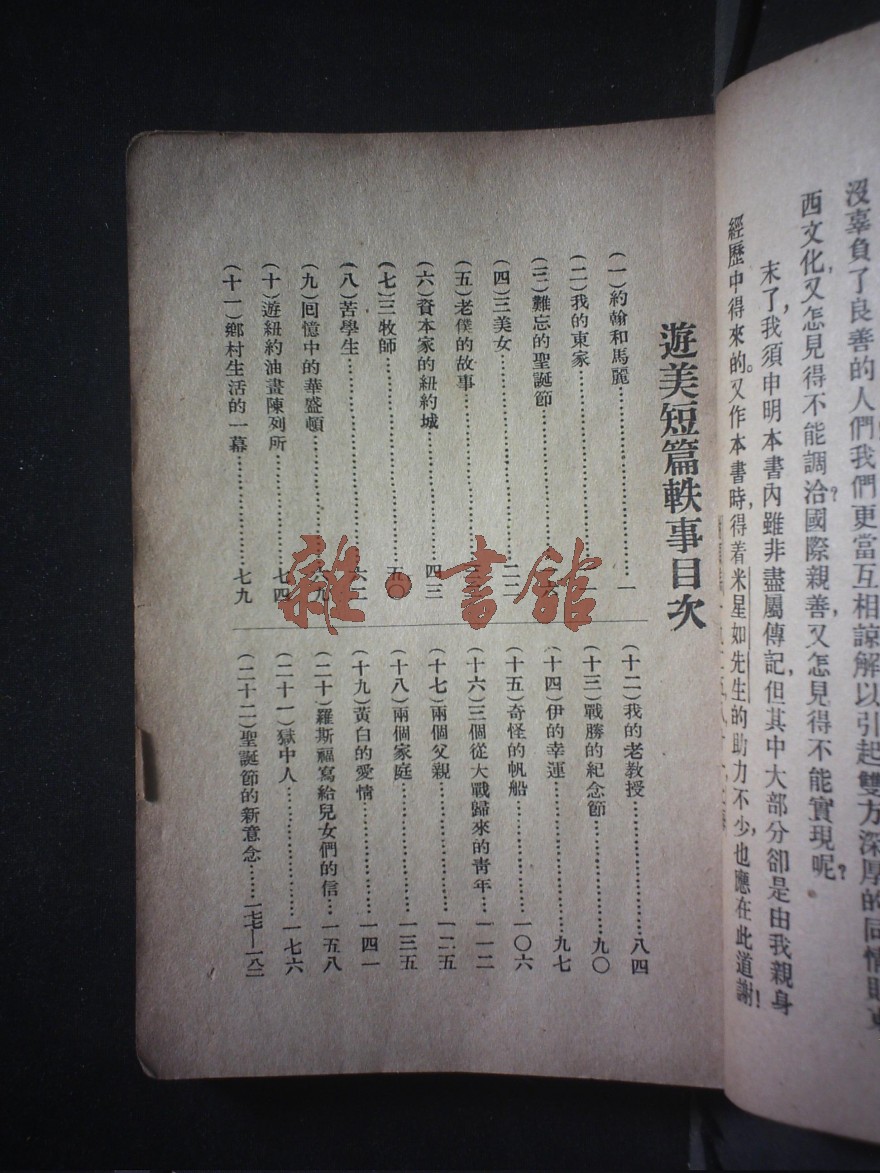 沒辜負了良善的人們我們更當互相諒解以引起雙方深厚的同情則東
西文化,又怎見得不能調洽?國際親善,又怎見得不能實現呢?
末了,我須申明本書內雖非盡屬傳記,但其中大部分卻是由我親身
經歷中得來的。又作本書時,得着米星如先生的助力不少,也應在此道謝!
遊美短篇軼事目次
(一)約翰和馬麗……………一
(二)我的東家……………
(三)難忘的聖誕節……………
(四)三美女……………二二
(五)老僕的故事……………
(六)資本家的紐約城……………四三
(七)三牧師……………五〇
(八)苦學生……………六二
(九)回憶中的華盛頓……………六九
(十)遊紐約油畫陳列所……………七四
(十一)鄉村生活的一幕……………七九
(十二)我的老教授……………八四
(十三)戰勝的紀念節……………九〇
(十四)伊的幸運……………九七
(十五)奇怪的帆船……………一〇六
(十六)三個從大戰歸來的靑年…一一二
(十七)兩個父親……………一二五
(十八)兩個家庭……………一三五
(十九)黃白的愛情……………一四一
(二十)羅斯福寫給兒女們的信…一五八
(二十一)獄中人……………一七六
(二十二)聖誕節的新意念……一七七—一八二
雜·書館